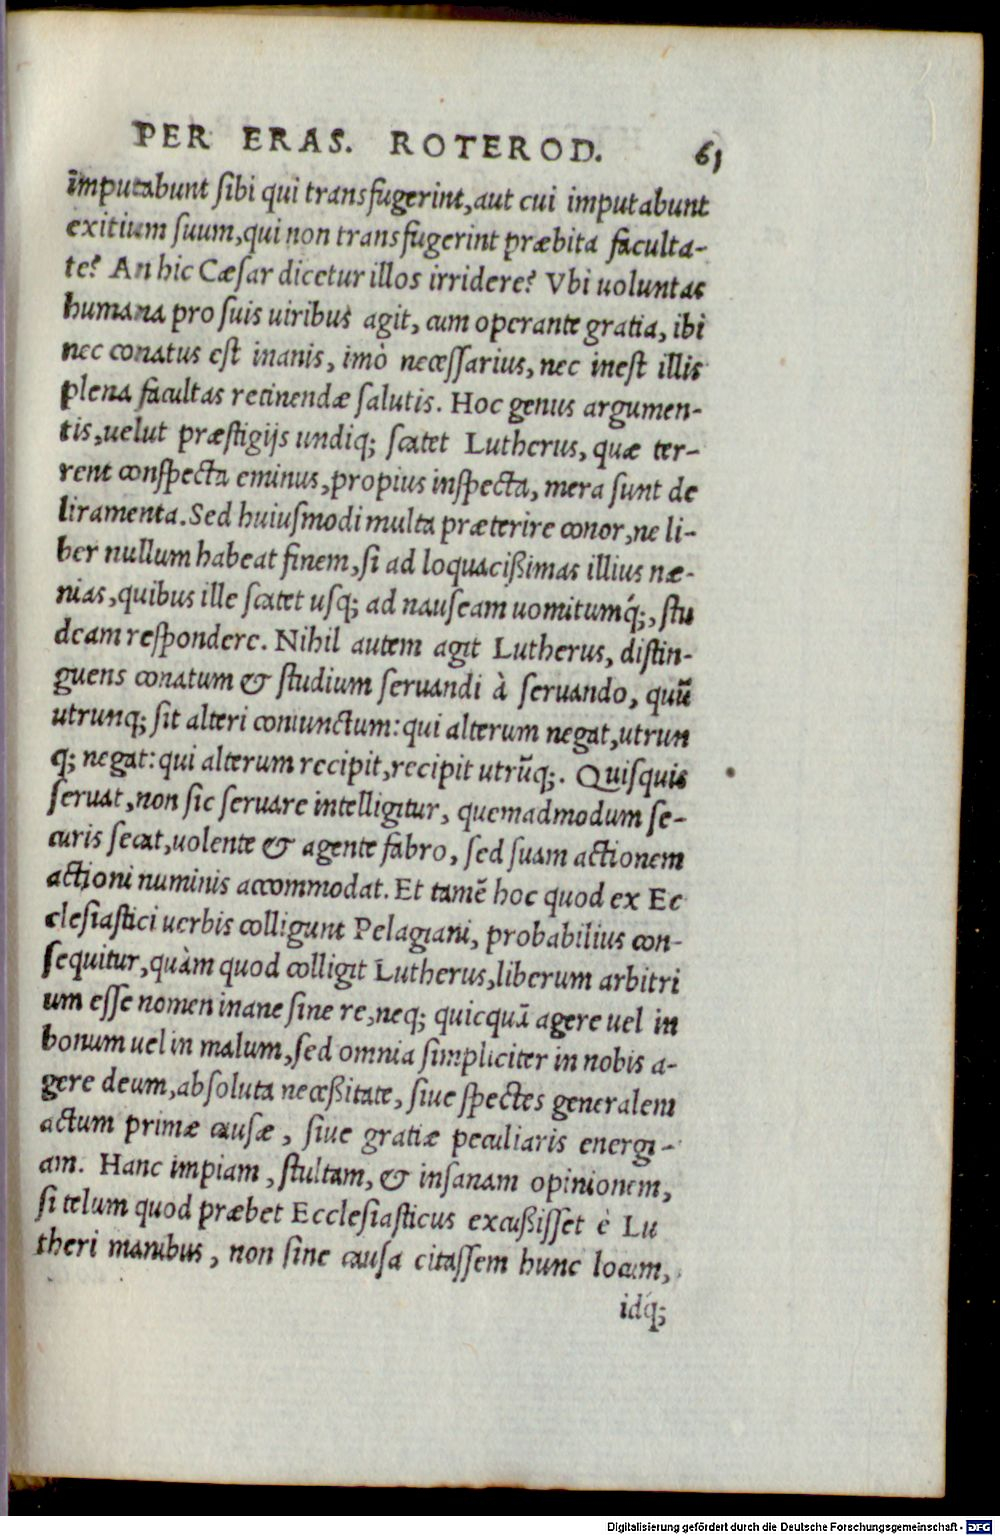 PER ERAS. ROTEROD. 61
īmputabunt ſibi qui transfugerint, aut cui imputabunt
exitium ſuum, qui non transfugerint præbita faculta-
te? An hic Cæſar dicetur illos irridere? Vbi uoluntas
humana pro ſuis uiribus agit, cum operante gratia, ibi
nec conatus eſt inanis, imò neceſſarius, nec ineſt illis
plena facultas retinendæ ſalutis. Hoc genus argumen-
tis, uelut præſtigijs undiq; ſcatet Lutherus, quæ ter-
rent conſpecta eminus, propius inſpecta, mera ſunt de
liramenta. Sed huiuſmodi multa præterire conor, ne li-
ber nullum habeat finem, ſi ad loquacißimas illius næ-
nias, quibus ille ſcatet uſq; ad nauſeam uomitumq́;, ſtu
deam reſpondere. Nihil autem agit Lutherus, diſtin-
guens conatum & ſtudium ſeruandi à ſeruando, quū
utrunq; ſit alteri coniunctum: qui alterum negat, utrun
q; negat: qui alterum recipit, recipit utrūq;. Quiſquis
ſeruat, non ſic ſeruare intelligitur, quemadmodum ſe-
curis ſecat, uolente & agente fabro, ſed ſuam actionem
actioni numinis accommodat. Et tamē hoc quod ex Ec
cleſiaſtici uerbis colligunt Pelagiani, probabilius con-
ſequitur, quàm quod colligit Lutherus, liberum arbitri
um eſſe nomen inane ſine re, neq; quicquā agere uel in
bonum uel in malum, ſed omnia ſimpliciter in nobis a-
gere deum, abſoluta neceßitate, ſiue ſpectes generalem
actum primæ cauſæ, ſiue gratiæ peculiaris energi-
am. Hanc impiam, ſtultam, & inſanam opinionem,
ſi telum quod præbet Eccleſiaſticus excußiſſet è Lu
theri manibus, non ſine cauſa citaſſem hunc locum,
idq́;
Digitalisierung gefördert durch die Deutsche Forschungsgemeinschaft - DFG